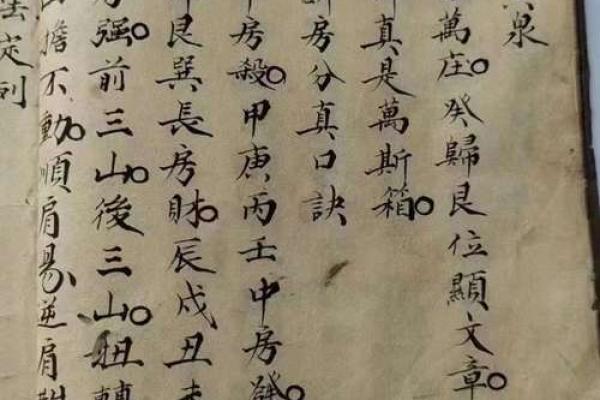 泉
萬庄。癸歸艮位顯文章。
真是萬斯箱。
房分真口訣
房殺。甲庚丙壬中房發。
艮巽長房財。辰戌丑未
房强。前三山。後三山。扭轉
擔不動。順肩易逆肩
定